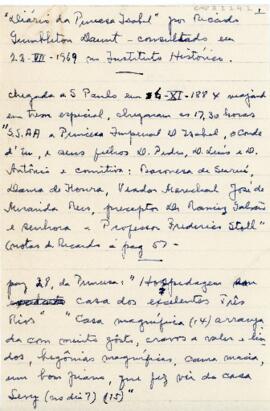 1
"Diário da Princesa Isabel" por Ricardo
Gumbleton Daunt - consultado em
23-VII-1969 no Instituto Histórico.
chegada a S Paulo em 6-XI-1884 viagem
trem especial, chegaram às 17,30 horas
"S.S.AA a Princesa Imperial D Isabel, o Conde
d'Eu, e seus filhos D. Pedro, D. Luís e D.
Antônio e comitiva: Baronesa de Suruí,
Dama de Honra, Veador Marechal José de
Miranda Reis, preceptor Dr Ramiz Galvão
e senhora e Professor Frederico Stoll"
(notas de Ricardo à pag 57 -
pag 28, da Princesa: "Hospedagem
casa dos excelentes Três
Rios" "Casa magnífica (14) arranja
da com muito gôsto, cravos a valer e lin
dos, begônias magníficas, cama macia,
um bom piano, que fiz vir da casa
Levy (no dia 7) (15)"